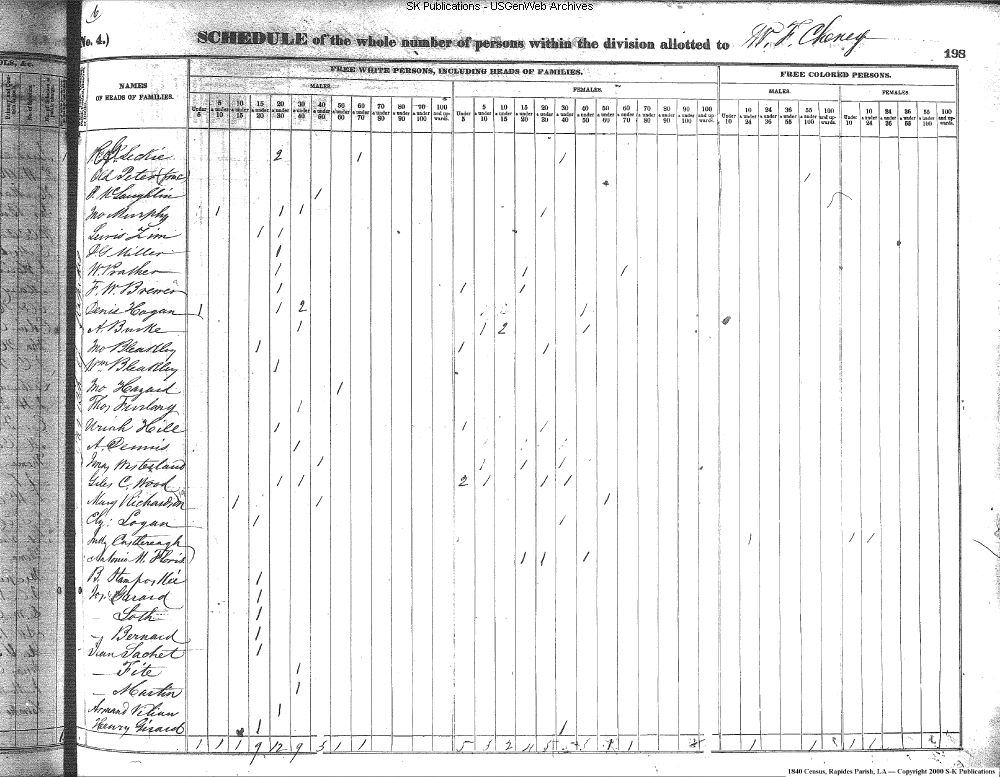 SK Publications - USGenWeb Archives
6
No. 4.) SCHEDULE of the whole number of persons within the division allotted to W. F. Cheney
198
FREE WHITE PERSONS, INCLUDING HEADS OF FAMILIES. FREE COLORED PERSONS.
NAMES OF HEADS OF FAMILIES.
MALES. FEMALES. MALES. FEMALES.
Under 5 5 & under 10 10 & under 15 15 & under 20 20 & under 30 30 & under 40 40 & under 50 50 & under 60 60 & under 70 70 & under 80 80 & under 90 90 & under 100 100 and upwards. Under 5 5 & under 10 10 & under 15 15 & under 20 20 & under 30 30 & under 40 40 & under 50 50 & under 60 60 & under 70 70 & under 80 80 & under 90 90 & under 100 100 and upwards. Under 10 10 & under 24 24 & under 36 36 & under 55 55 & under 100 100 and upwards. Under 10 10 & under 24 24 & under 36 36 & under 55 55 & under 100 100 and upwards.
Leckie 2 1 1
Old Peter 1
McLaughlin 1
Jno Murphy 1 1 1 1
Lewis Zim 1 1
Miller 1
W. Prather 1 1 1
F. W. Brewer 1 1 1
Denis Hogan 1 1 2 1 1
A. Burke 1 1 2 1
Jno Bleakley 1 1 1
Wm Bleakley 1
Jno Hazard 1
Thos Furlong 1
Uriah Hill 1 1 1
A. Dennis 1
Westerland 1 1 1 1
Giles C. Wood 1 1 2 1 1 1
Mary Richardson 1 1 1
Logan 1 1
Castereagh 1 1 1
Antonio M. Floris 1 1 1
B. 1
Girard 1
— Soth 1
Bernard 1
Jean Sachet 1
— Fite 1
— Martin 1
Armand Vilian 1
Henry Girard 1 1
1 1 1 9 12 9 3 1 1 5 2 4 5 1 1 1 1 1
1840 Census, Rapides Parish, LA — Copyright 2000 S-K Publications